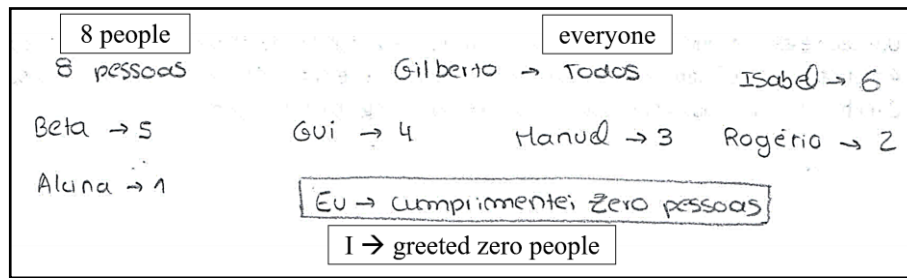 8 people everyone
8 pessoas Gilberto → Todos Isabel → 6
Beta → 5 Gui → 4 Manuel → 3 Rogério → 2
Alcina → 1
Eu → cumprimentei zero pessoas
I → greeted zero people